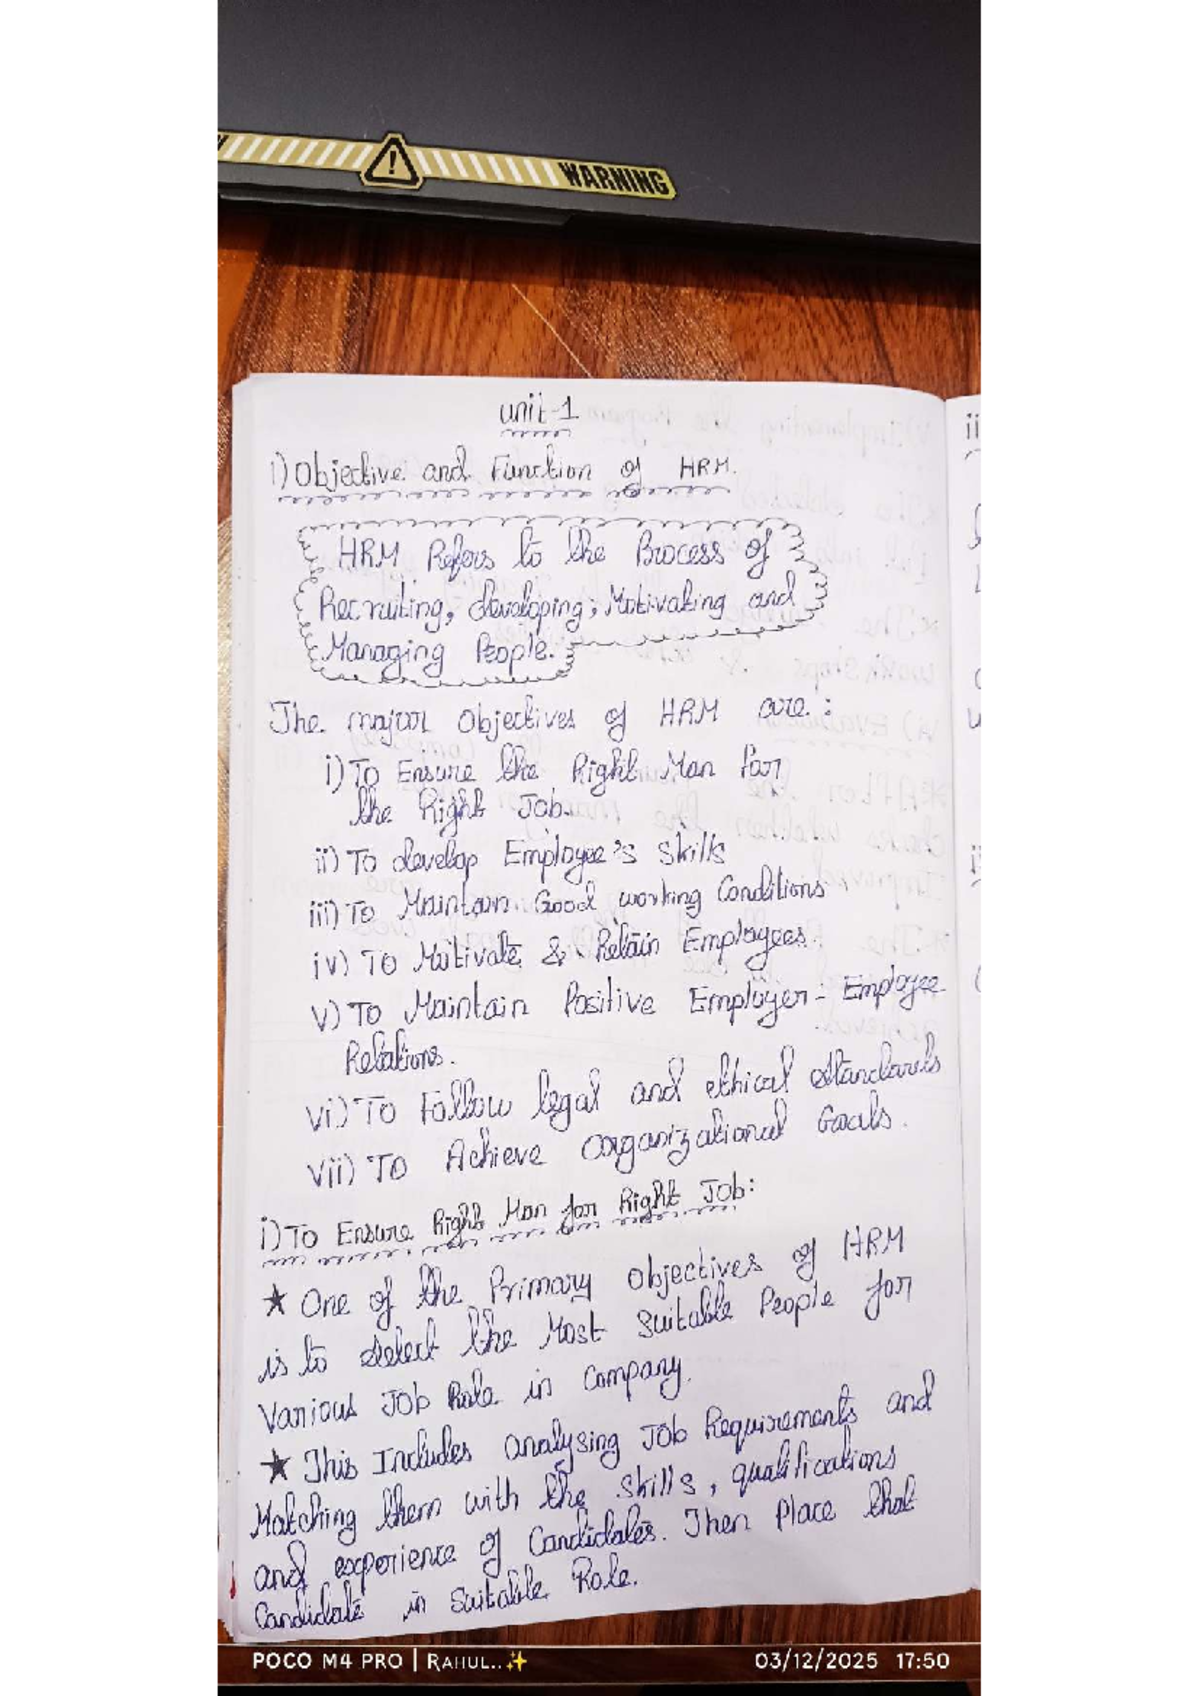 WARNING
unit-1
i) Objective and Function of HRM.
HRM Refers to the Process of
Recruiting, developing, Motivating and
Managing People.
The major Objectives of HRM are :
i) To Ensure the Right Man for
the Right Job.
ii) To develop Employee's Skills
iii) To Maintain Good working Conditions
iv) To Motivate & Retain Employees.
v) To Maintain Positive Employer - Employee
Relations.
vi) To Follow legal and ethical standards
vii) To Achieve organizational Goals.
i) To Ensure Right Man for Right Job:
★ One of the Primary objectives of HRM
is to select the Most Suitable People for
Various Job Role in Company.
★ This Includes analysing Job Requirements and
Matching them with the skills, qualifications
and experience of Candidates. Then Place that
Candidate in Suitable Role.
POCO M4 PRO | RAHUL..✨
03/12/2025 17:50